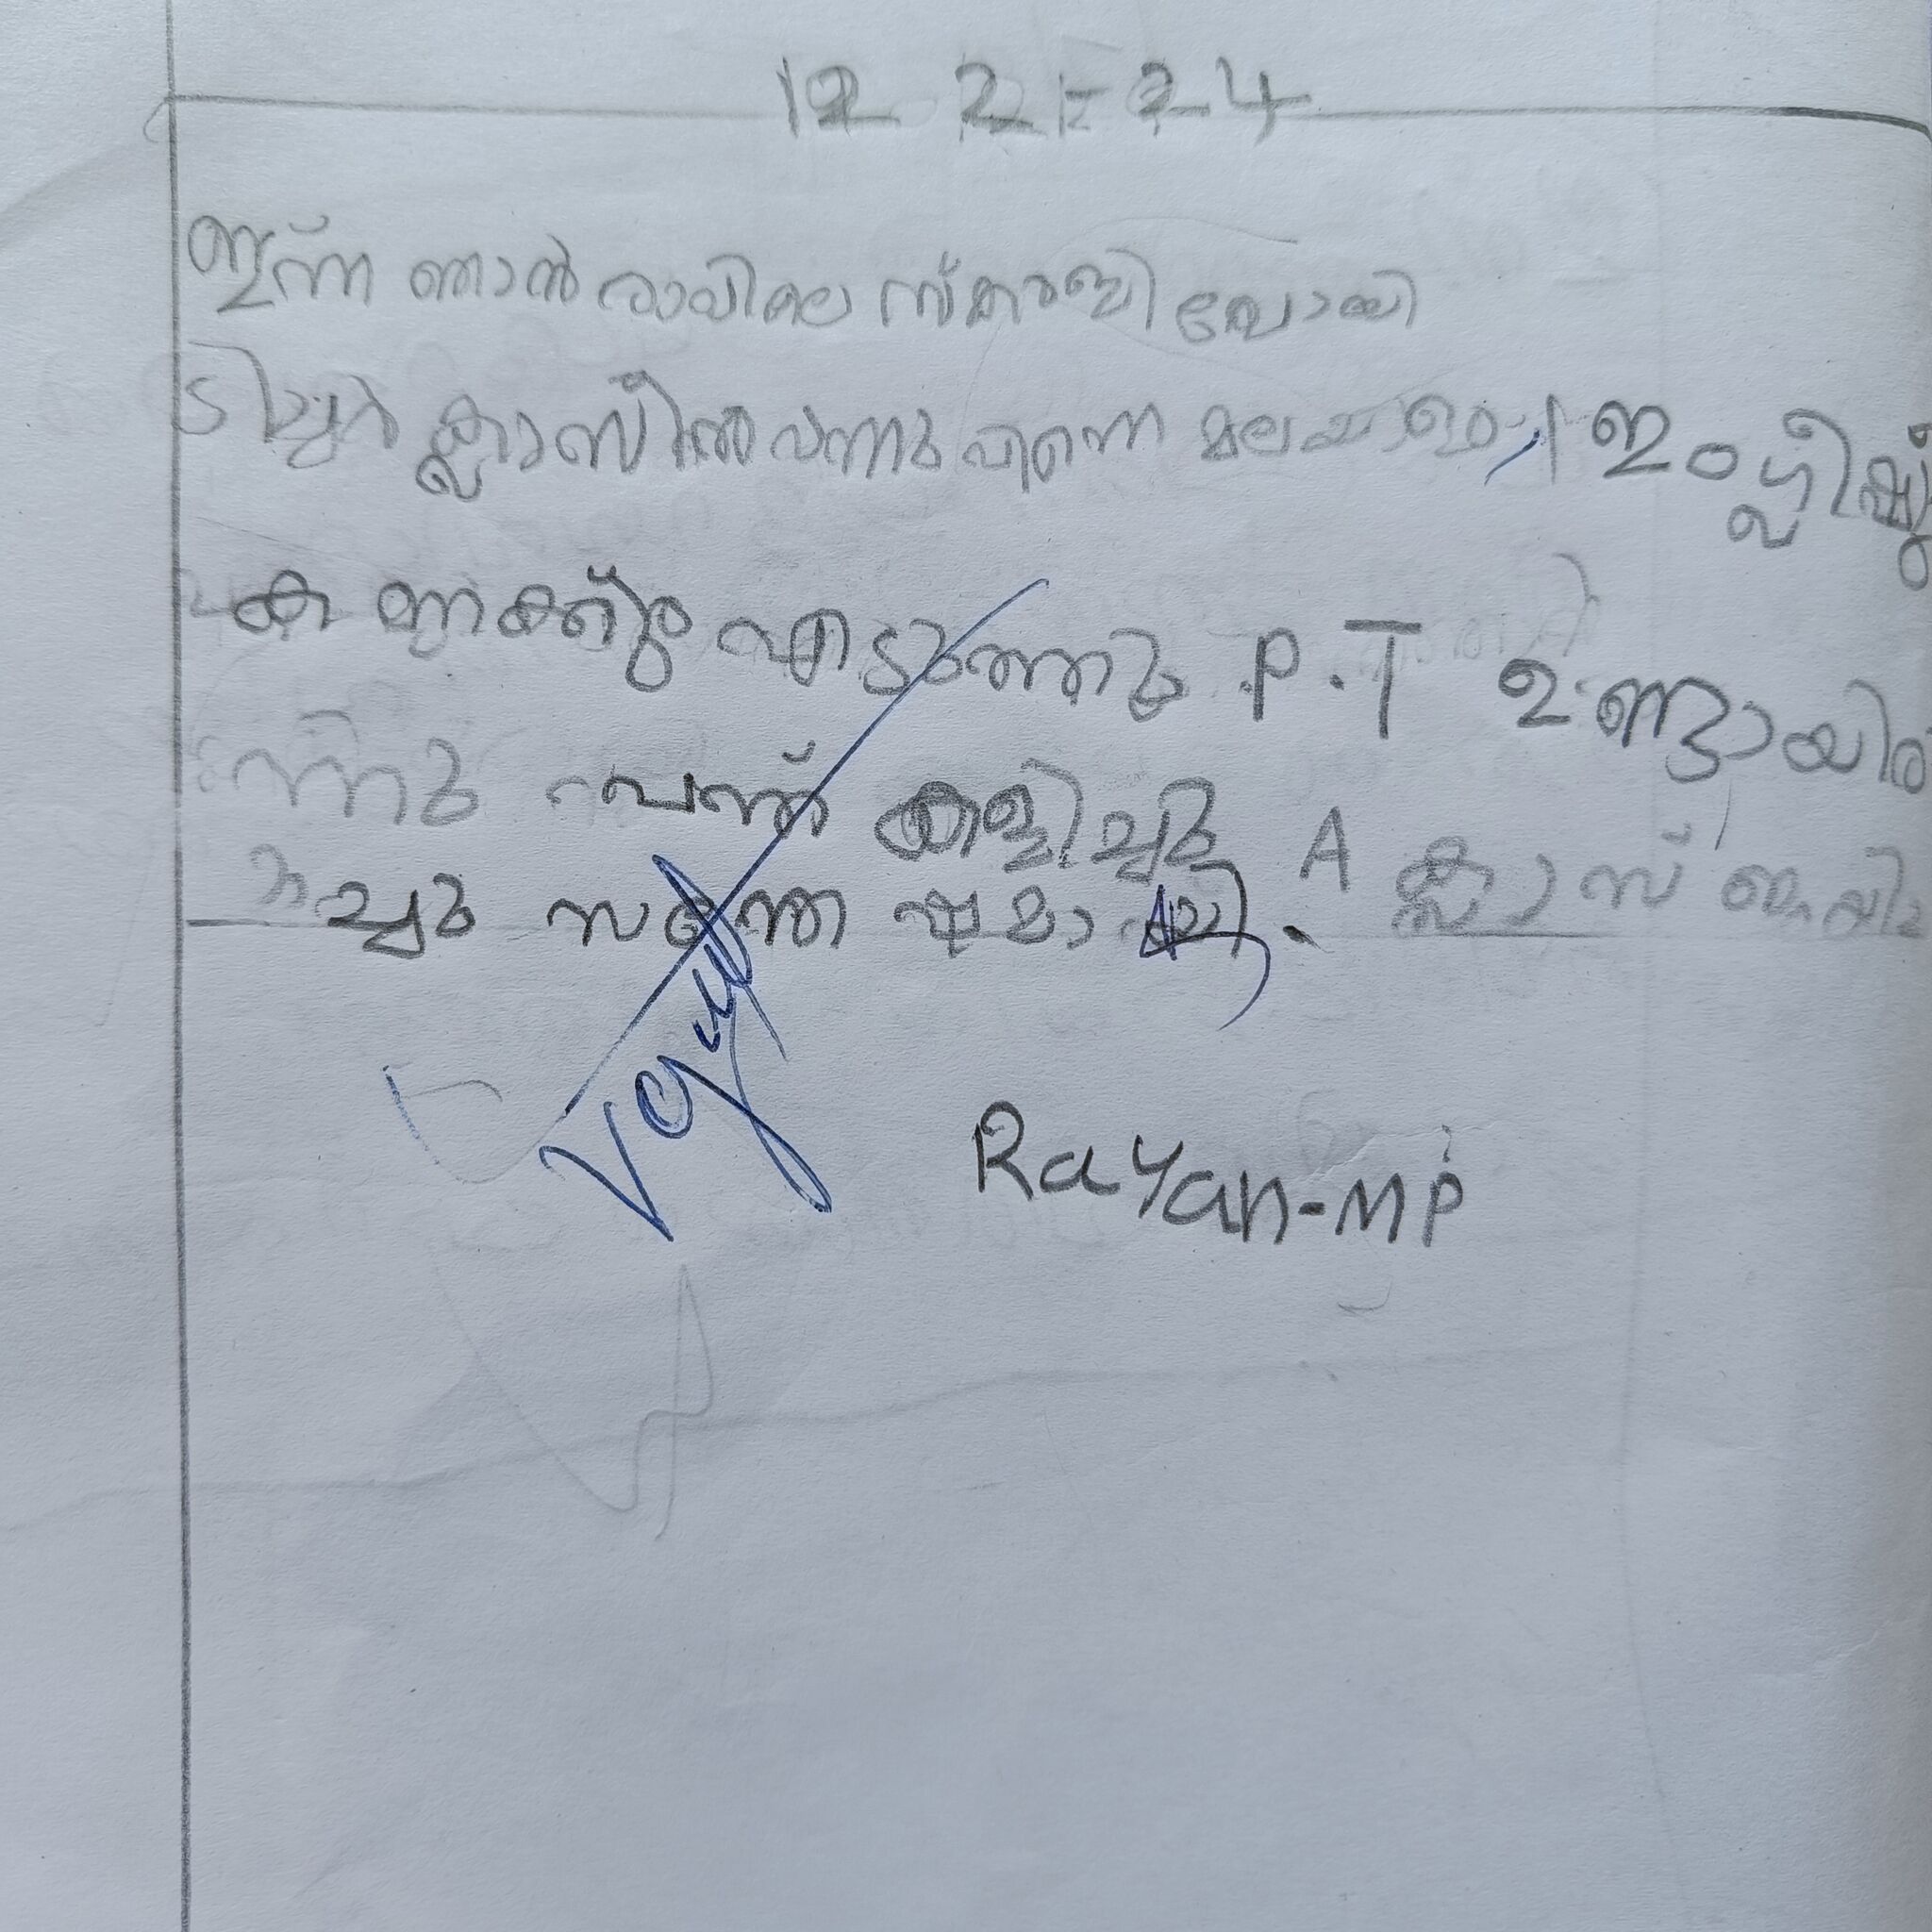 12 2-24
ഇന്ന ഞാൻ രാവിലെ പോയി
ടിച്ചർ ക്ലാസിൽ വന്നു എന്നെ മലയാളം, ഇംഗ്ലീഷും
കണക്കും എടുത്തു P.T ഉണ്ടായിര
ന്നു പന്ത് കളിച്ചു A ക്ലാസ്
ച്ചു സന്തേഷമായി.
Rayan-MP